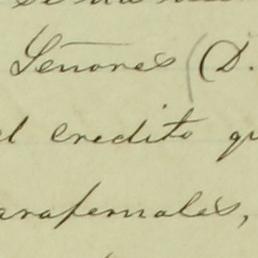 Señores (D.
el credito qu
parafernales,